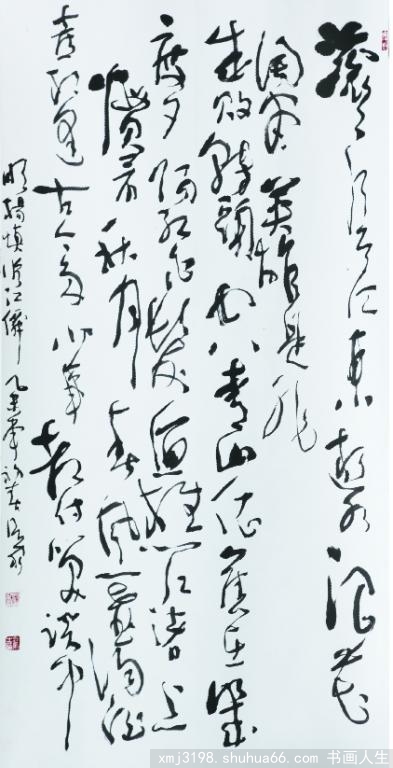 滚滚长江东逝水浪花
淘尽英雄是非
成败转头空青山依旧在几
度夕阳红白发渔樵江渚上
惯看秋月春风一壶浊酒
喜相逢古今多少事都付笑谈中
明杨慎临江仙 乙未年初春
xmj3198.shuhua66.com 书画人生